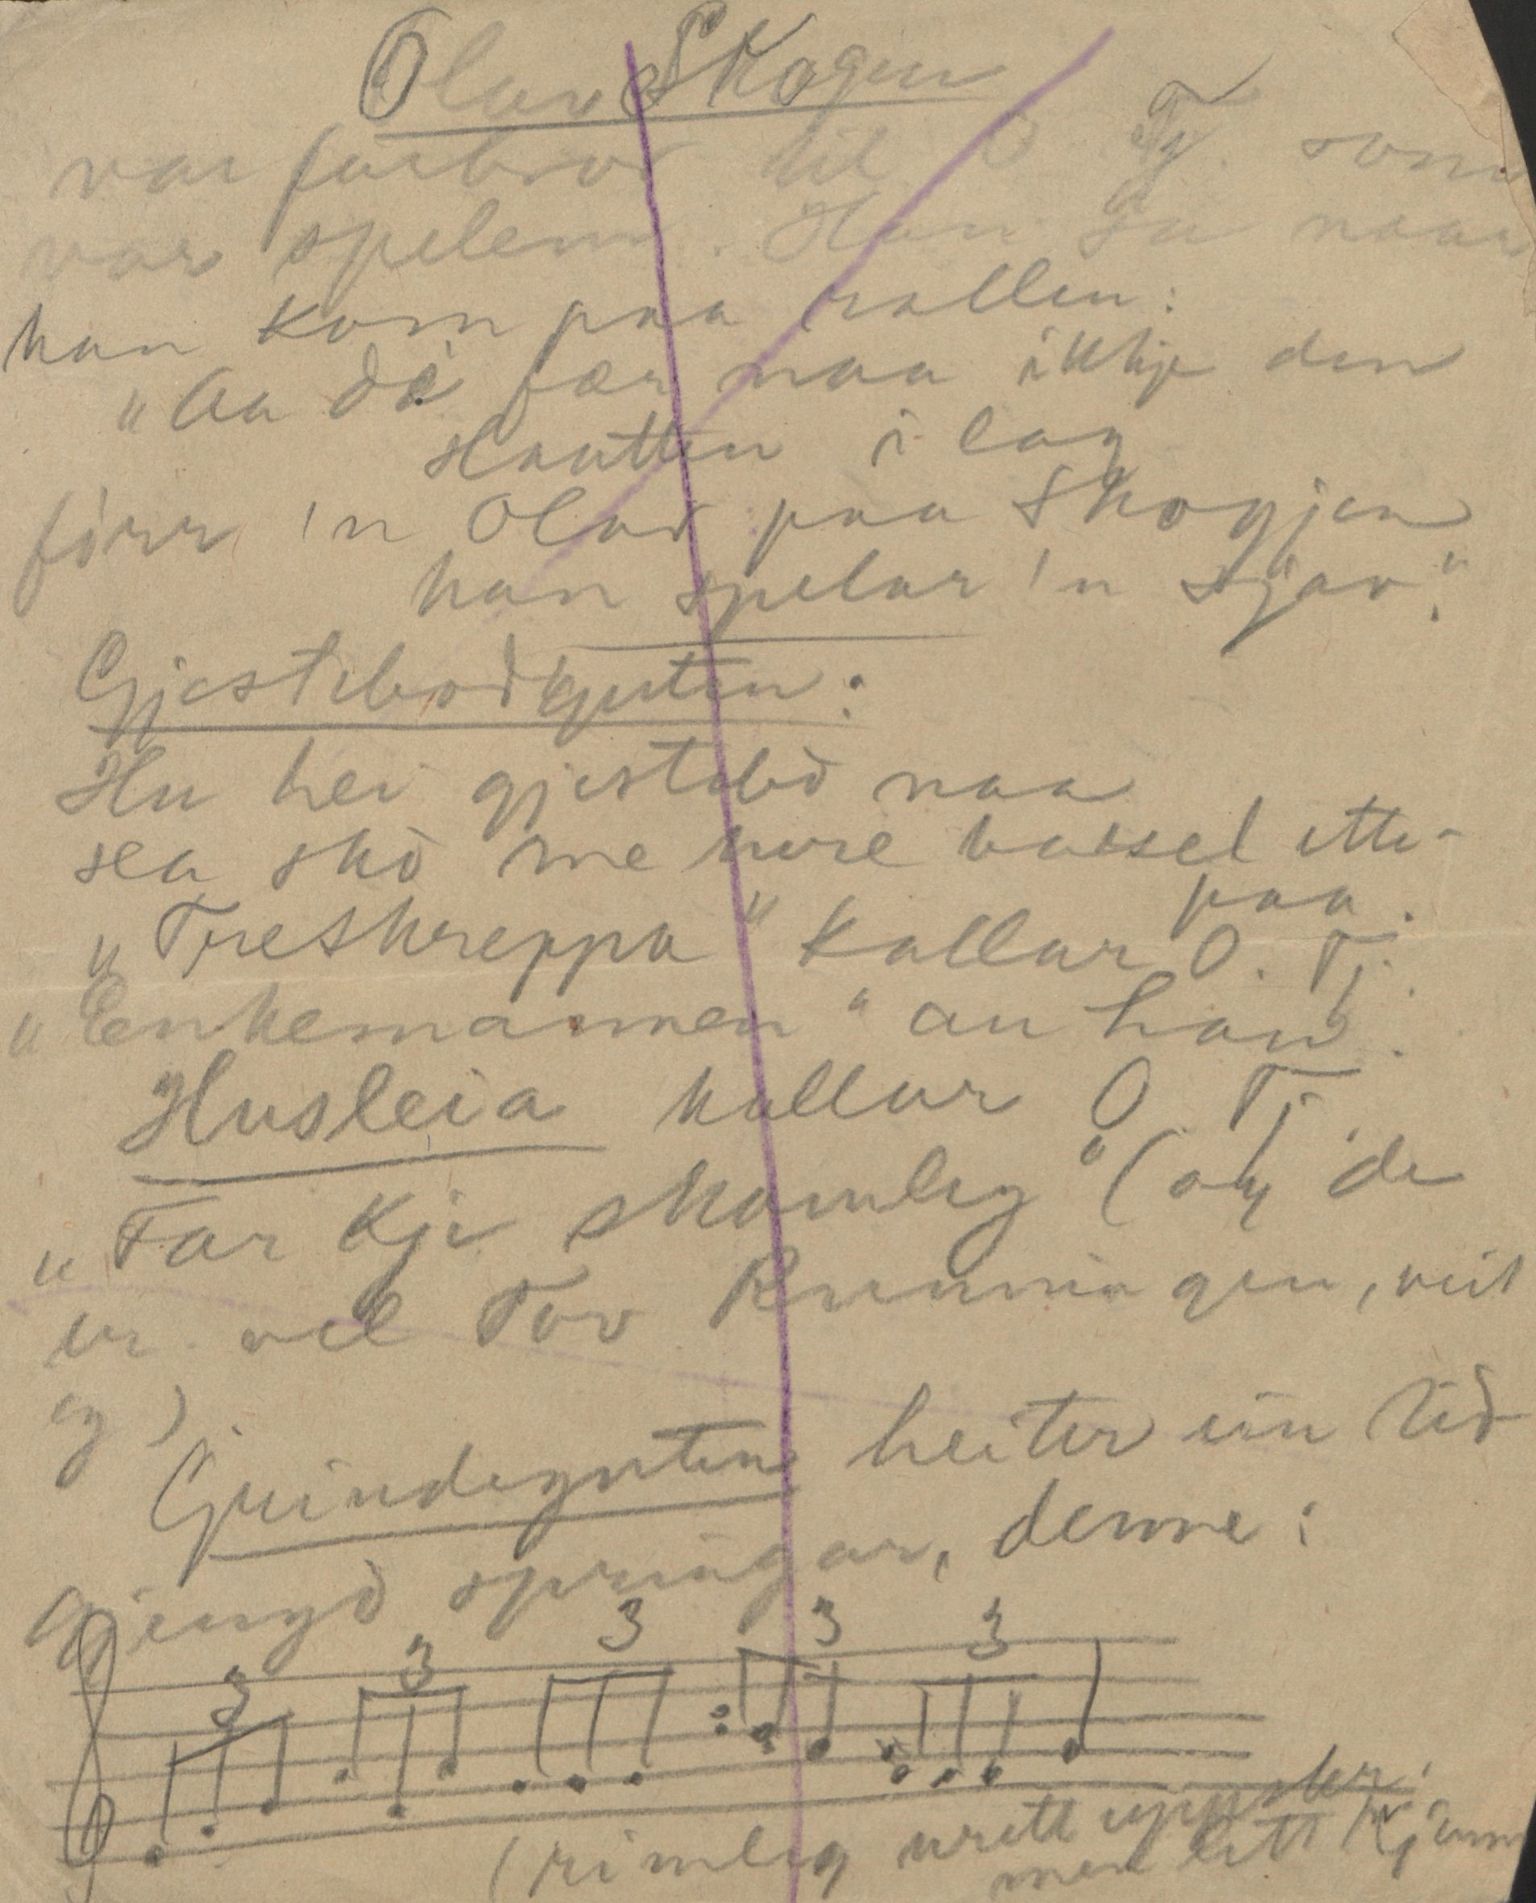 Olav Skogen
var farbror til O Tj. som
var spelem. Han sa naar
han kom paa rallen:
"Aa dè fær naa ikkje den
slaatten i lag
fórr 'n Olav paa Skogjen
han spelar 'n sjøv".
Gjestebodguten:
Hu hei gjestebò naa
sea skò me have barsel ette-
paa.
"Treskreppa" kallar O. Tj.
"Enkemannen" au han.
Husleia kallar O Tj
"Far kje skamleg" (og de
er vel Tov Running gen, veit
eg)
Grindeguten heiter ein tid
gjengd springar, denne:
3 3 3 3 3
(rimleg urett uppskr.
men litt kjenn